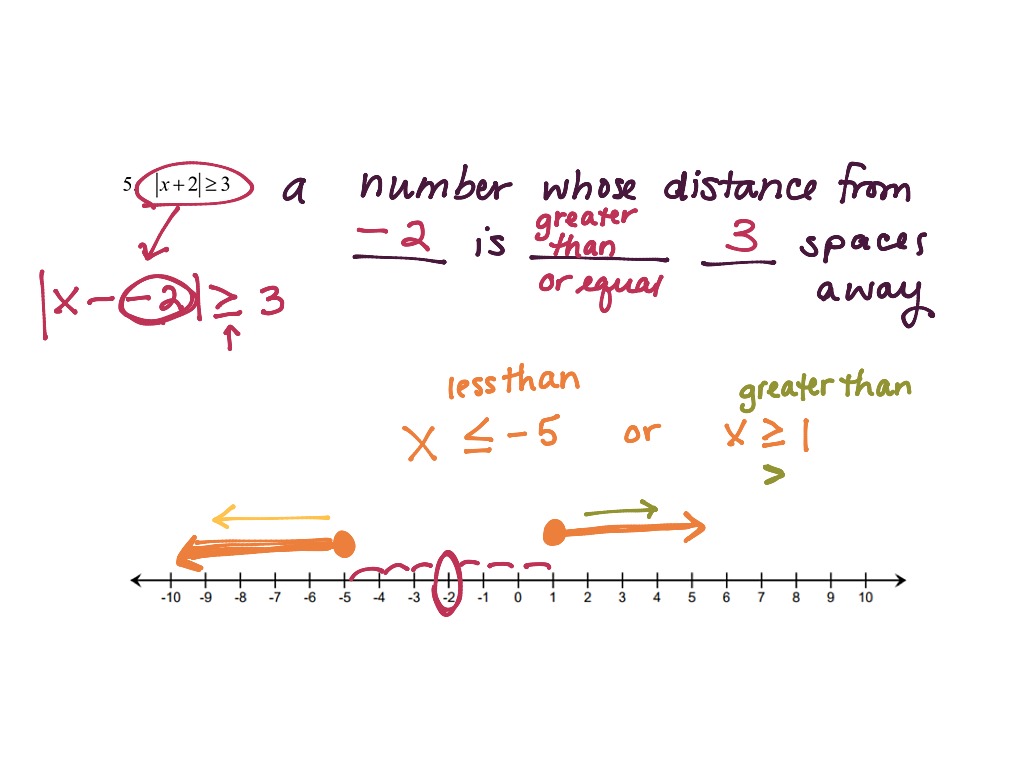 5. |x+2| ≥ 3 a number whose distance from
-2 is greater than or equal 3 spaces
away
|x - -2| ≥ 3
less than greater than
x ≤ -5 or x ≥ 1
>
-10 -9 -8 -7 -6 -5 -4 -3 -2 -1 0 1 2 3 4 5 6 7 8 9 10